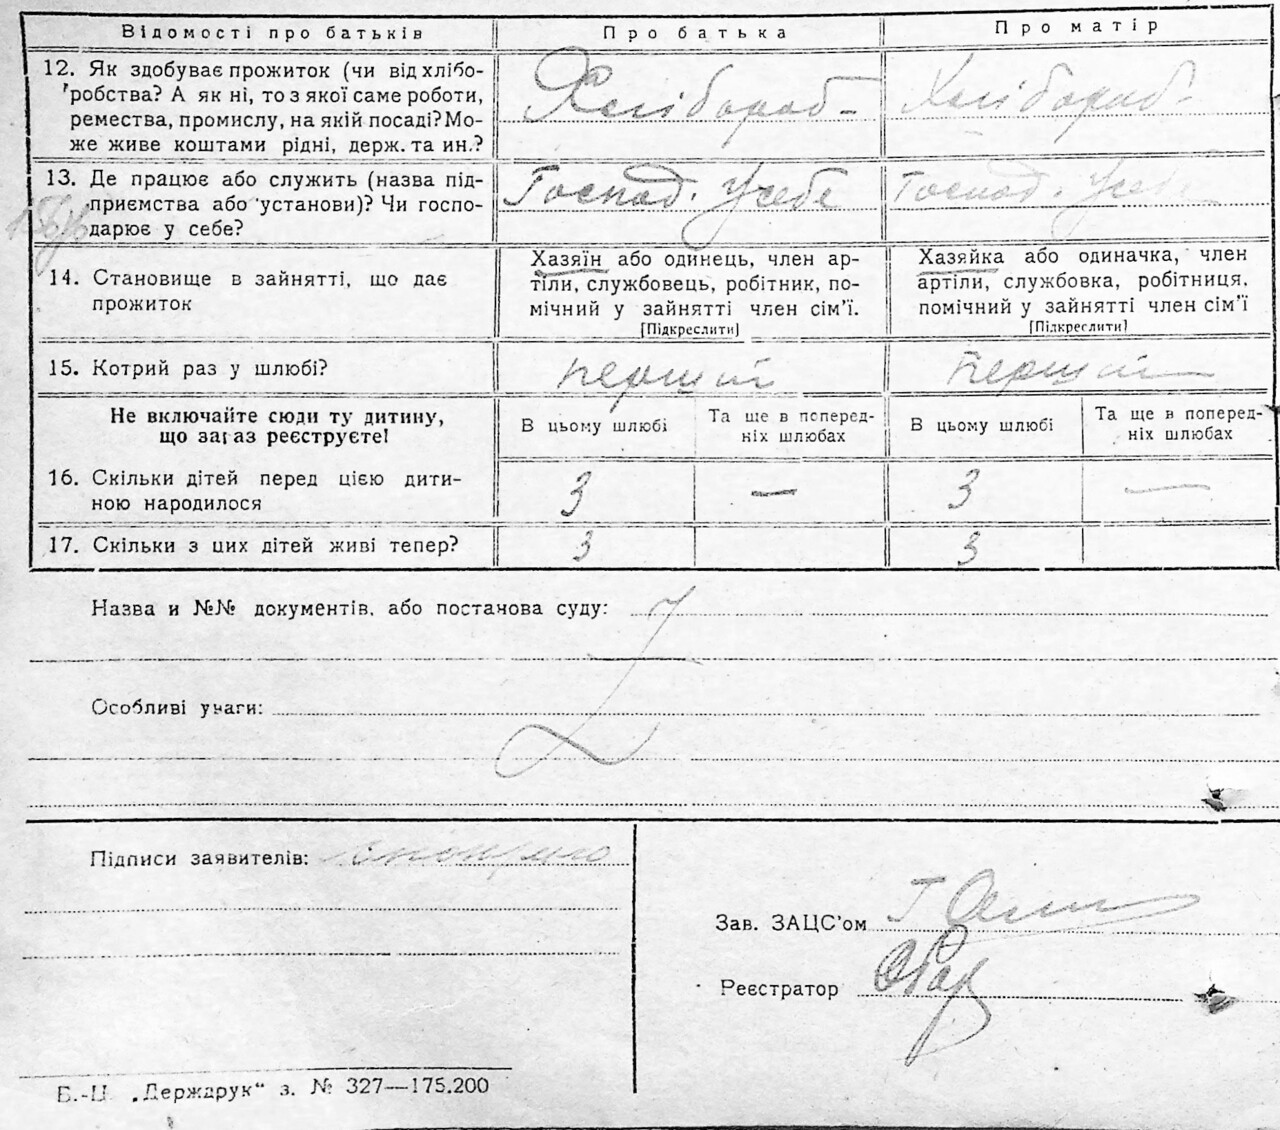 Відомості про батьків
Про батька
Про матір
12. Як здобуває прожиток (чи від хлібо-
робства? А як ні, то з якої саме роботи,
ремества, промислу, на якій посаді? Мо-
же живе коштами рідні, держ. та ин.?
Хлібороб-
Хлібороб-
13. Де працює або служить (назва під-
приємства або установи)? Чи госпо-
дарює у себе?
Господ. У себе
Господ. У себе
14. Становище в зайнятті, що дає
прожиток
Хазяїн або одинець, член ар-
тіли, службовець, робітник, по-
мічний у зайнятті член сім'ї.
[Підкреслити]
Хазяйка або одиначка, член
артіли, службовка, робітниця,
помічний у зайнятті член сім'ї
[Підкреслити]
15. Котрий раз у шлюбі?
перший
перший
Не включайте сюди ту дитину,
що зараз реєструєте!
В цьому шлюбі
Та ще в поперед-
ніх шлюбах
В цьому шлюбі
Та ще в поперед-
ніх шлюбах
16. Скільки дітей перед цією дити-
ною народилося
3
—
3
—
17. Скільки з цих дітей живі тепер?
3
3
Назва и №№ документів, або постанова суду:
Особливі уваги:
Підписи заявителів:
Зав. ЗАЦС'ом
Реєстратор
Б.-Ц. „Держдрук“ з. № 327—175.200